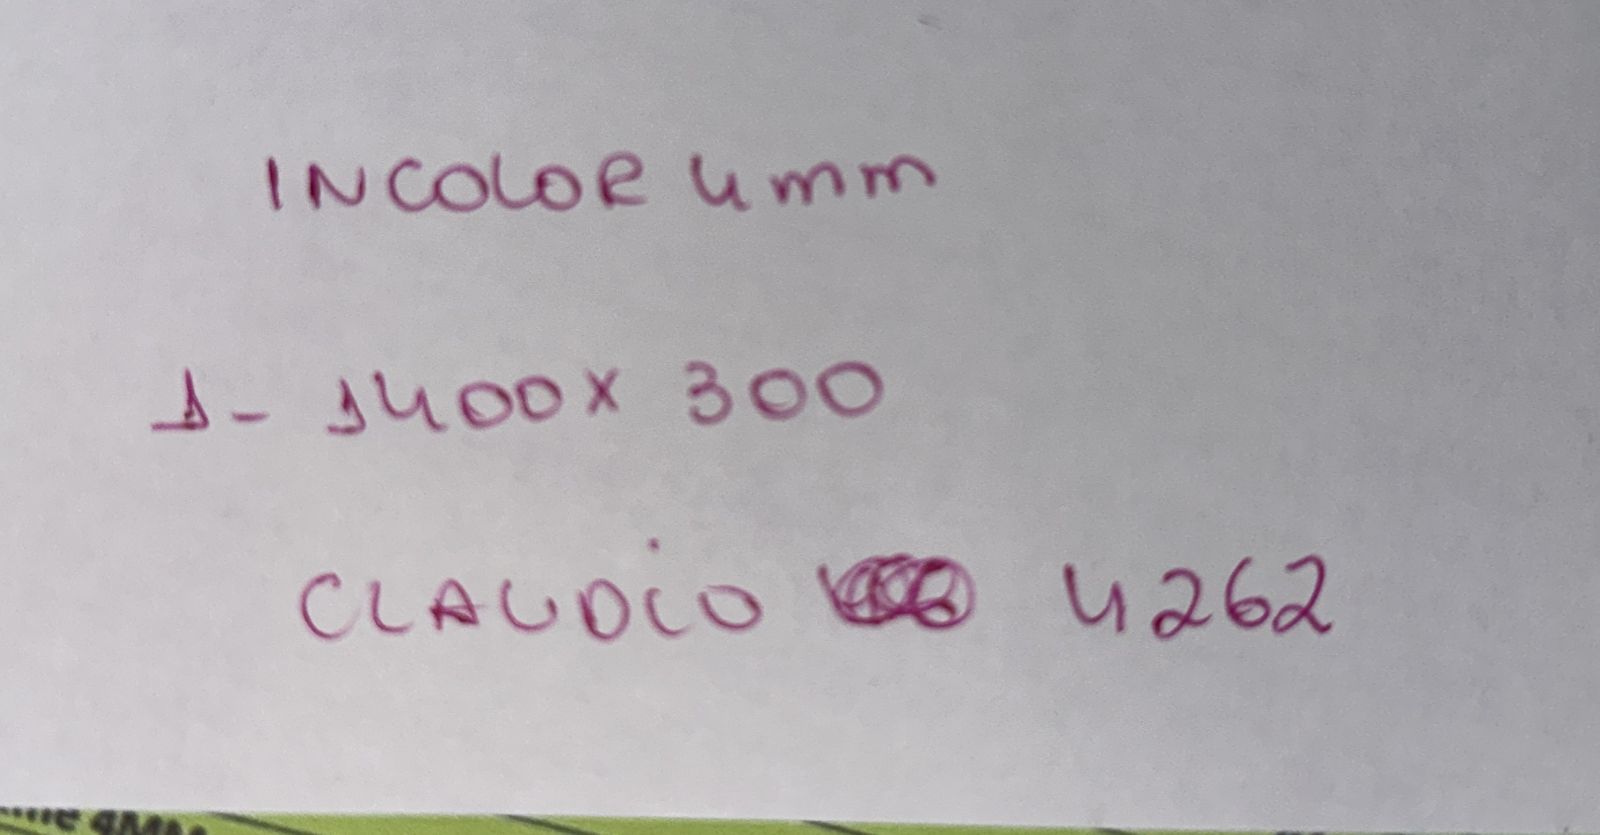 INCOLOR 4mm
1- 1400 x 300
CLAUDIO 4262